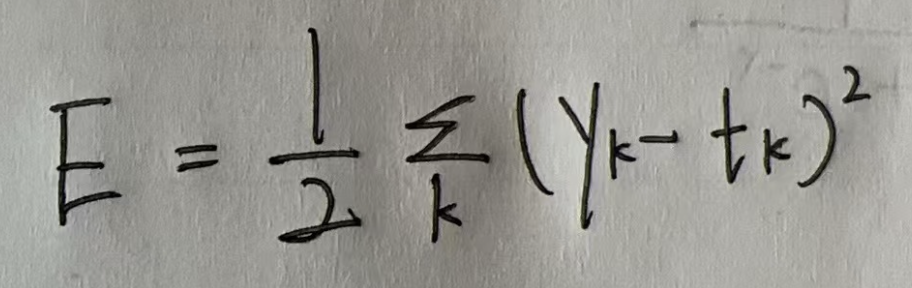 E = \frac{1}{2} \sum_{k} (y_k - t_k)^2